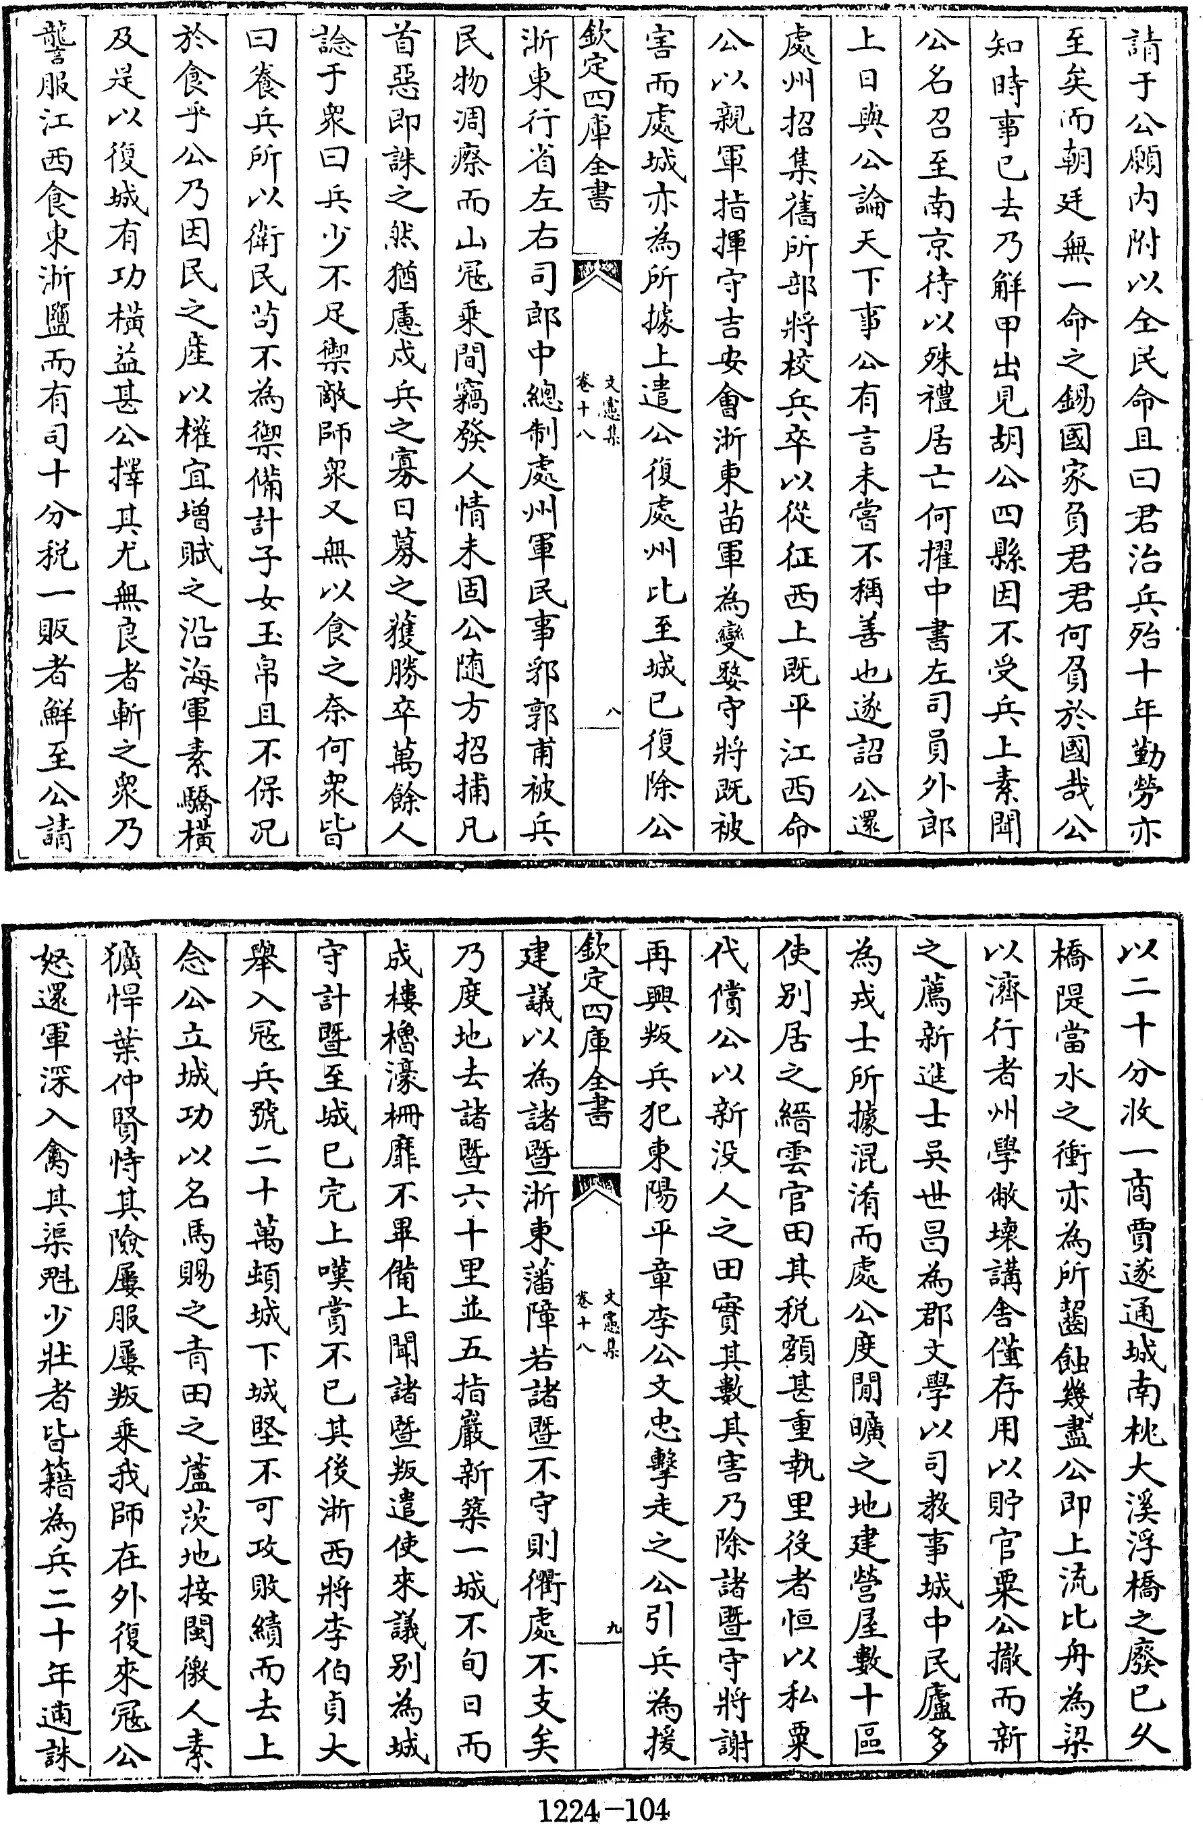 請于公願內附以全民命且曰君治兵殆十年勤勞亦
至矣而朝廷無一命之錫國家負君君何負於國哉公
知時事已去乃解甲出見胡公四縣因不受兵上素聞
公名召至南京待以殊禮居亡何擢中書左司員外郎
上日與公論天下事公有言未嘗不稱善也遂詔公還
處州招集舊所部將校兵卒以從征西上既平江西命
公以親軍指揮守吉安會浙東苗軍為變婺守將既被
害而處城亦為所據上遣公復處州比至城已復除公
欽定四庫全書
文憲集
卷十八
八
浙東行省左右司郎中總制處州軍民事郛郭甫被兵
民物凋瘵而山冦乗間竊發人情未固公随方招捕凡
首惡即誅之然猶慮戍兵之寡日募之獲勝卒萬餘人
諗于衆曰兵少不足禦敵師衆又無以食之奈何衆皆
曰養兵所以衛民茍不為禦備計子女玉帛且不保况
於食乎公乃因民之産以權宜增賦之沿海軍素驕橫
及是以復城有功橫益甚公擇其尤無良者斬之衆乃
讋服江西食東浙鹽而有司十分税一販者鮮至公請
以二十分收一商賈遂通城南桃大溪浮橋之廢已乆
橋隄當水之衝亦為所齧蝕幾盡公即上流比舟為梁
以濟行者州學敝壊講舍僅存用以貯官粟公撤而新
之薦新進士吳世昌為郡文學以司教事城中民廬多
為戎士所據混淆而處公度閒曠之地建營屋數十區
使别居之縉雲官田其税額甚重執里役者恒以私粟
代償公以新没人之田實其數其害乃除諸暨守將謝
再興叛兵犯東陽平章李公文忠擊走之公引兵為援
欽定四庫全書
文憲集
卷十八
九
建議以為諸暨浙東藩障若諸暨不守則衢處不支矣
乃度地去諸暨六十里並五指巖新築一城不旬日而
成樓櫓濠柵靡不畢備上聞諸暨叛遣使來議别為城
守計暨至城已完上嘆賞不已其後浙西將李伯貞大
舉入冦兵號二十萬頓城下城堅不可攻敗績而去上
念公立城功以名馬賜之青田之蘆茨地接閩徼人素
獷悍葉仲賢恃其險屢服屢叛乗我師在外復來冦公
怒還軍深入禽其渠魁少壯者皆籍為兵二十年逋誅
1224-104